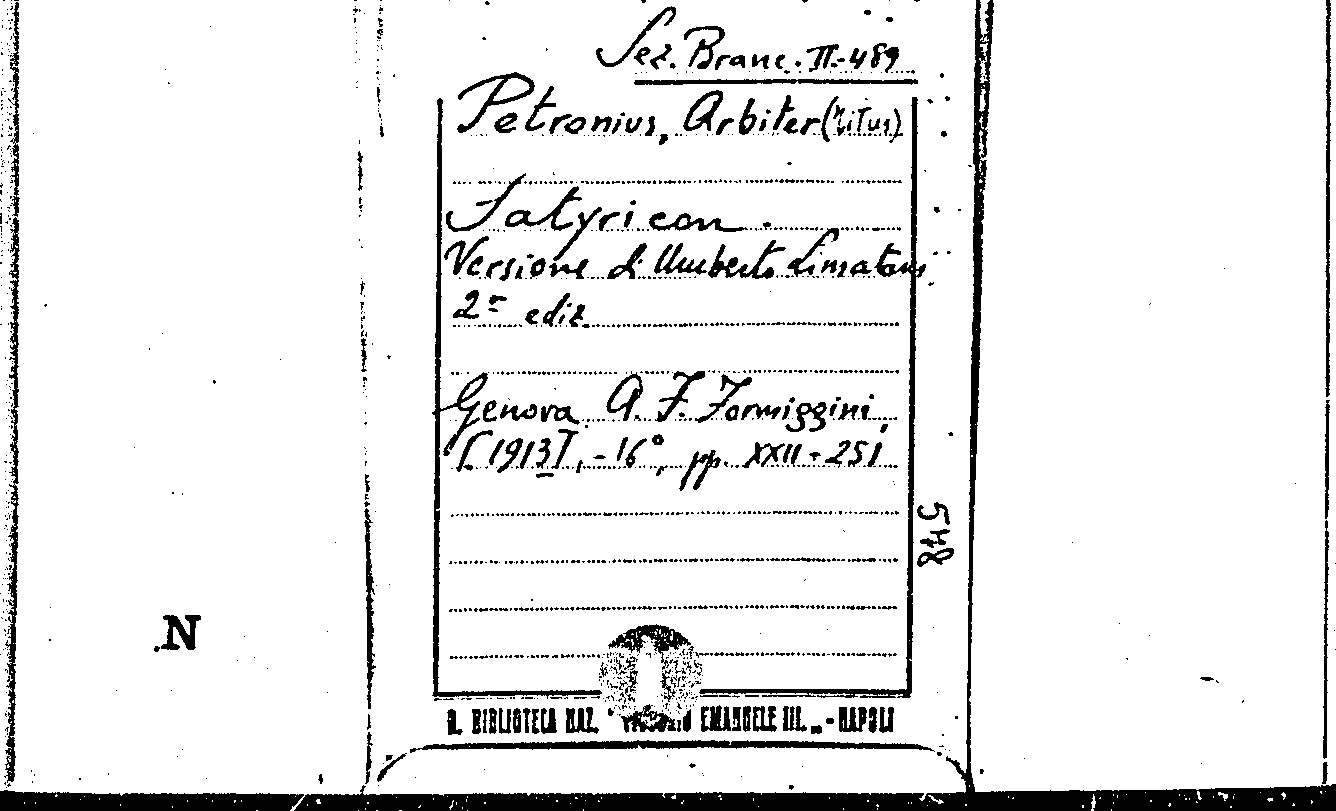 Sez. Branc. II-489
Petronius, Arbiter (Titus)
Satyricon.
Versione di Umberto Limatani
2ª ediz.
Genova A. F. Formiggini,
[1913], -16°, pp. XXII-251
548
N
R. BIBLIOTECA NAZ. " VITTORIO EMANUELE III. „ - NAPOLI